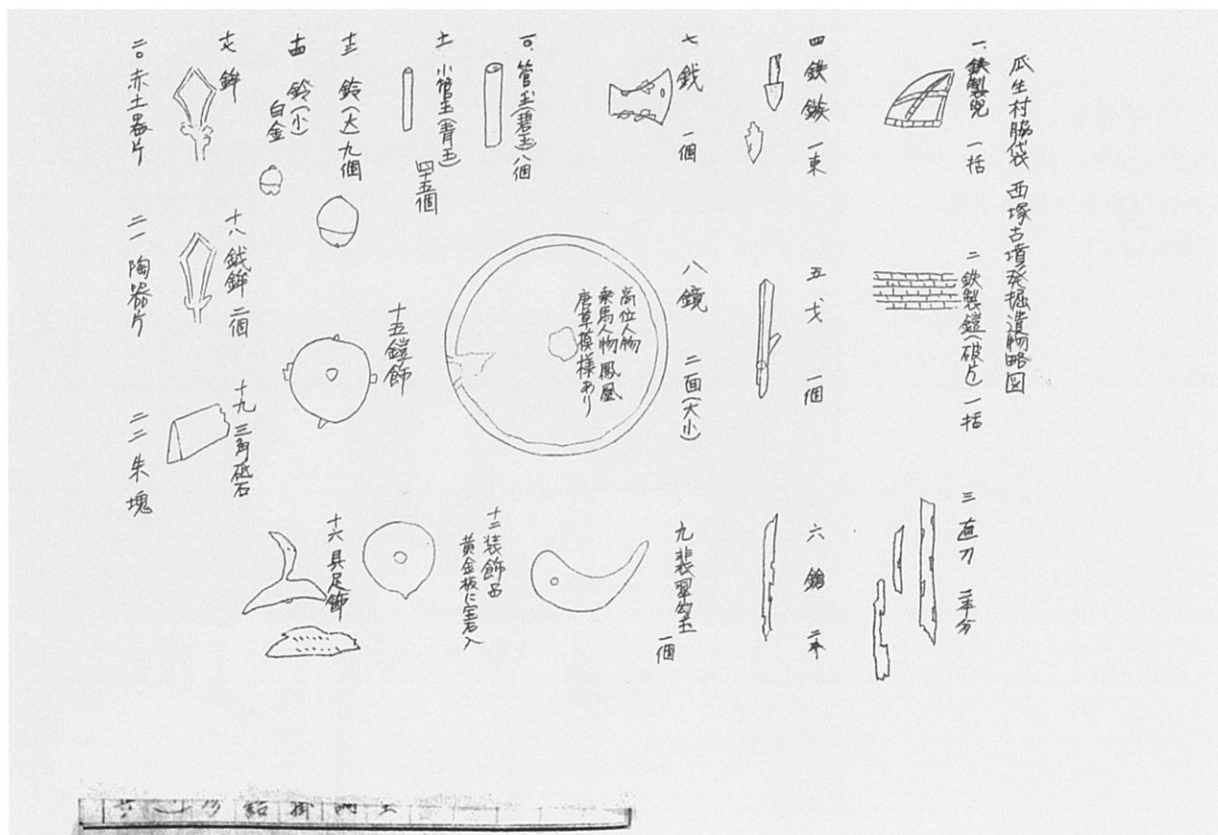 瓜生村脇袋 西塚古墳発掘遺物略図
一 鉄製兜 一括
二 鉄製鎧(破片)一括
三 直刀 二本分
四 鉄鏃 一束
五 戈 一個
六 鎗 二本
七 鉞 一個
八 鏡 二面(大小)
高位人物
乗馬人物 鳳凰
唐草模様あり
九 翡翠勾玉
一個
一〇 管玉(碧玉)八個
十一 小管玉(青玉)
四十五個
十二 装飾品
黄金板に宝石入
十三 鈴(大)九個
十四 鈴(小)
白金
十五 鎧飾
十六 具足飾
十七 鉾
十八 鉞鉾 二個
十九 三角砥石
二〇 赤土器片
二一 陶器片
二二 朱塊